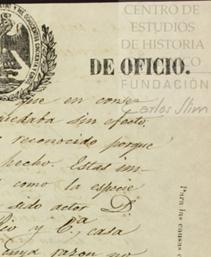 CENTRO DE
ESTUDIOS
DE HISTORIA
DE MÉXICO
FUNDACIÓN
Carlos Slim
DE OFICIO.
que en con
quedaba sin efecto,
reconocido porque
hecho. Estas im-
como la especie
sido actor D.
y Cª, casa
cuya razon no
Para las causas c